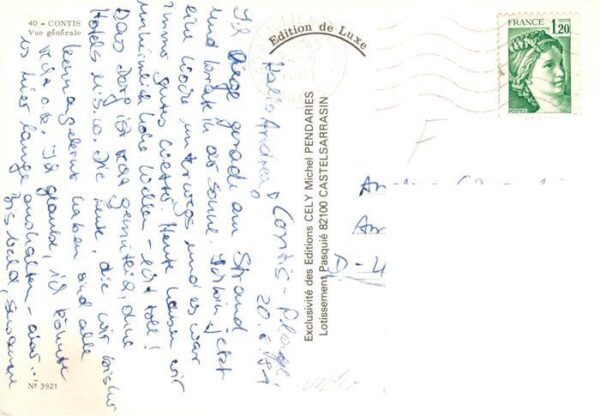 40 - CONTIS
Vue générale
Edition de Luxe
FRANCE
1,20
POSTES
Contis-Plage,
20.6.81
Hallo Andrea,
Ich liege gerade am Strand
und brate in der Sonne. Ich bin jetzt
eine Woche unterwegs und es war
immer gutes Wetter. Heute haben wir
unheimlich hohe Wellen - echt toll!
Das Dorf ist ganz gemütlich, ohne
Hotels u.s.w. Die Leute, die wir bisher
kennengelernt haben sind alle
Ich glaube, ich könnte
es hier lange aushalten - aber..
Bis bald, Susanne
Exclusivité des Editions CELY Michel PENDARIES
Lotissement Pasquié 82100 CASTELSARRASIN
F
D-4
N° 3921